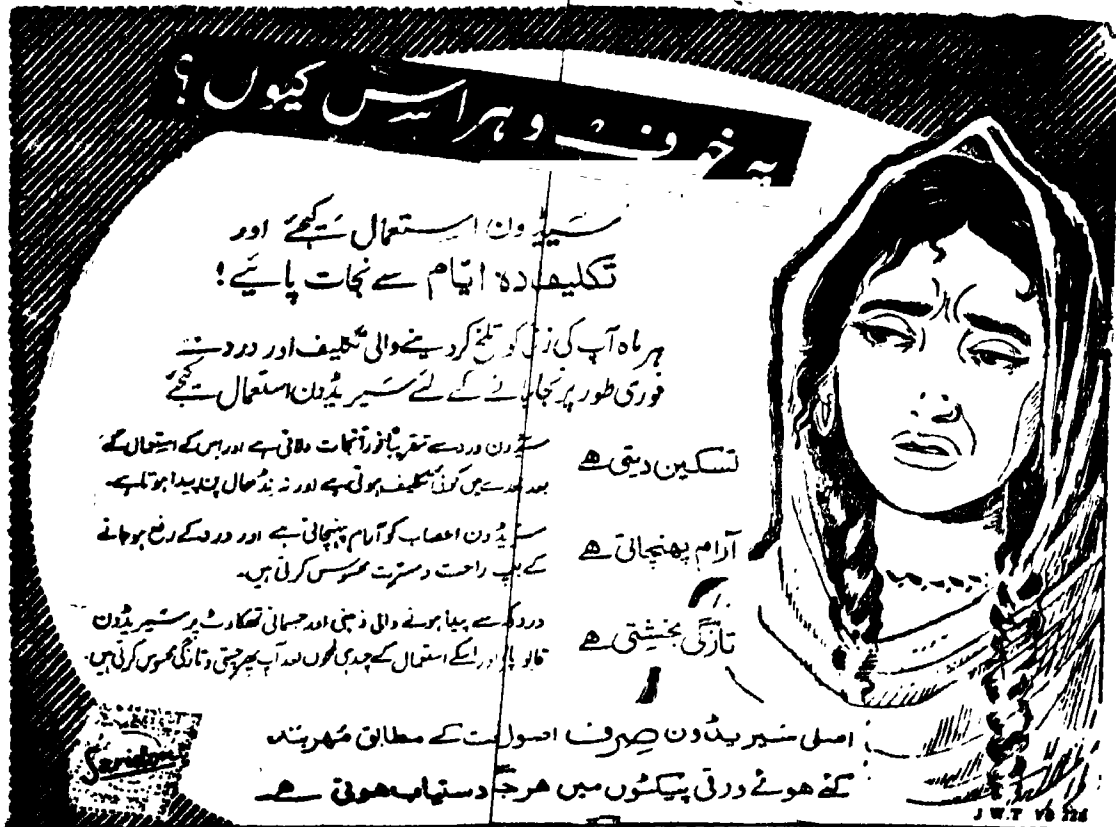 یہ خوف و ہراس کیوں ؟
سیریڈون استعمال کیجئے اور
تکلیف دہ ایام سے نجات پائیے!
ہر ماہ آپ کی کو تلخ کر دینے والی تکلیف اور درد سے
فوری طور پر کے لئے سیریڈون استعمال کیجئے
تسکین دیتی ہے
سیریڈون درد سے تقریباً فوراً نجات دلاتی ہے اور اس کے استعمال کے
بعد معدے میں کوئی تکلیف ہوتی ہے اور نہ نڈھال پن پیدا ہوتا ہے۔
آرام پہنچاتی ہے
سیریڈون اعصاب کو آرام پہنچاتی ہے اور درد کے رفع ہو جانے
کے راحت و مسرت محسوس کرتی ہیں۔
تازگی بخشتی ہے
درد سے پیدا ہونے والی ذہنی اور جسمانی تھکاوٹ پر سیریڈون
قابو اور اسکے استعمال کے چند ہی لمحوں بعد آپ پھر چستی و تازگی محسوس کرتی ہیں۔
اصلی سیریڈون صرف اصول کے مطابق مُہر بند
کئے ہوئے ورقی پیکٹوں میں ہر جگہ دستیاب ہوتی ہے
Saridon
J W.T